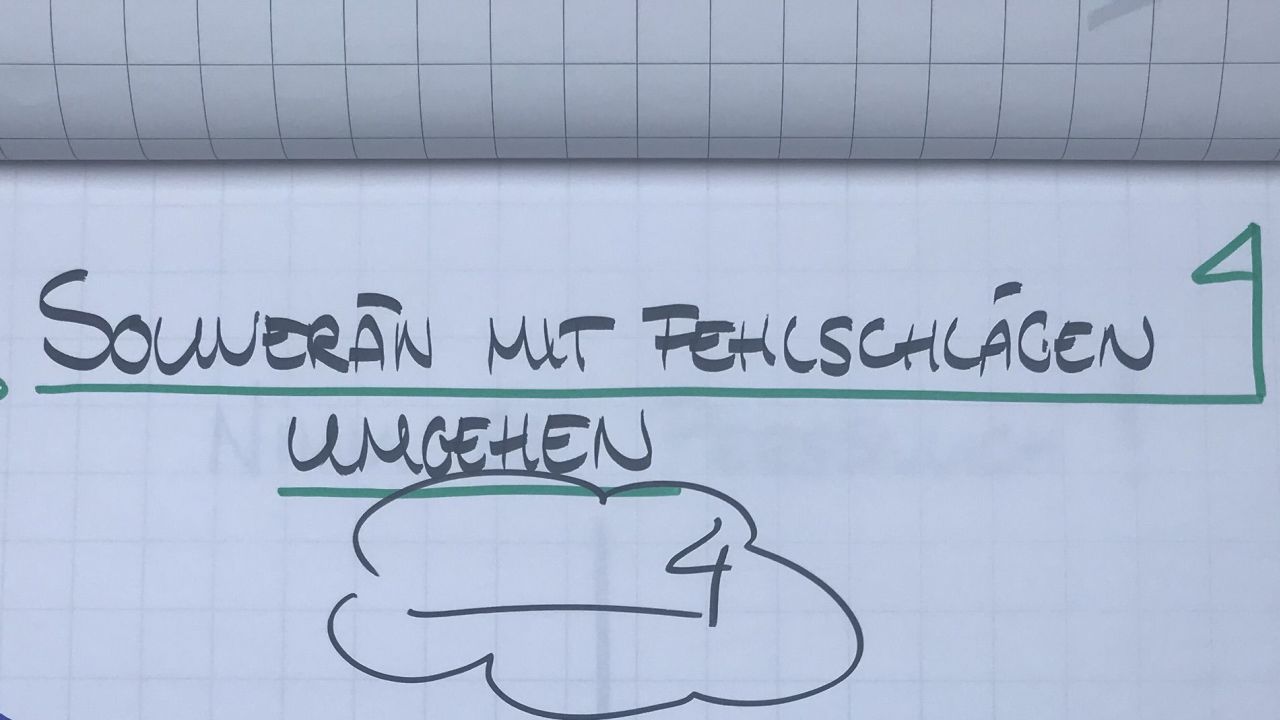 SOUVERÄN MIT FEHLSCHLÄGEN
UMGEHEN